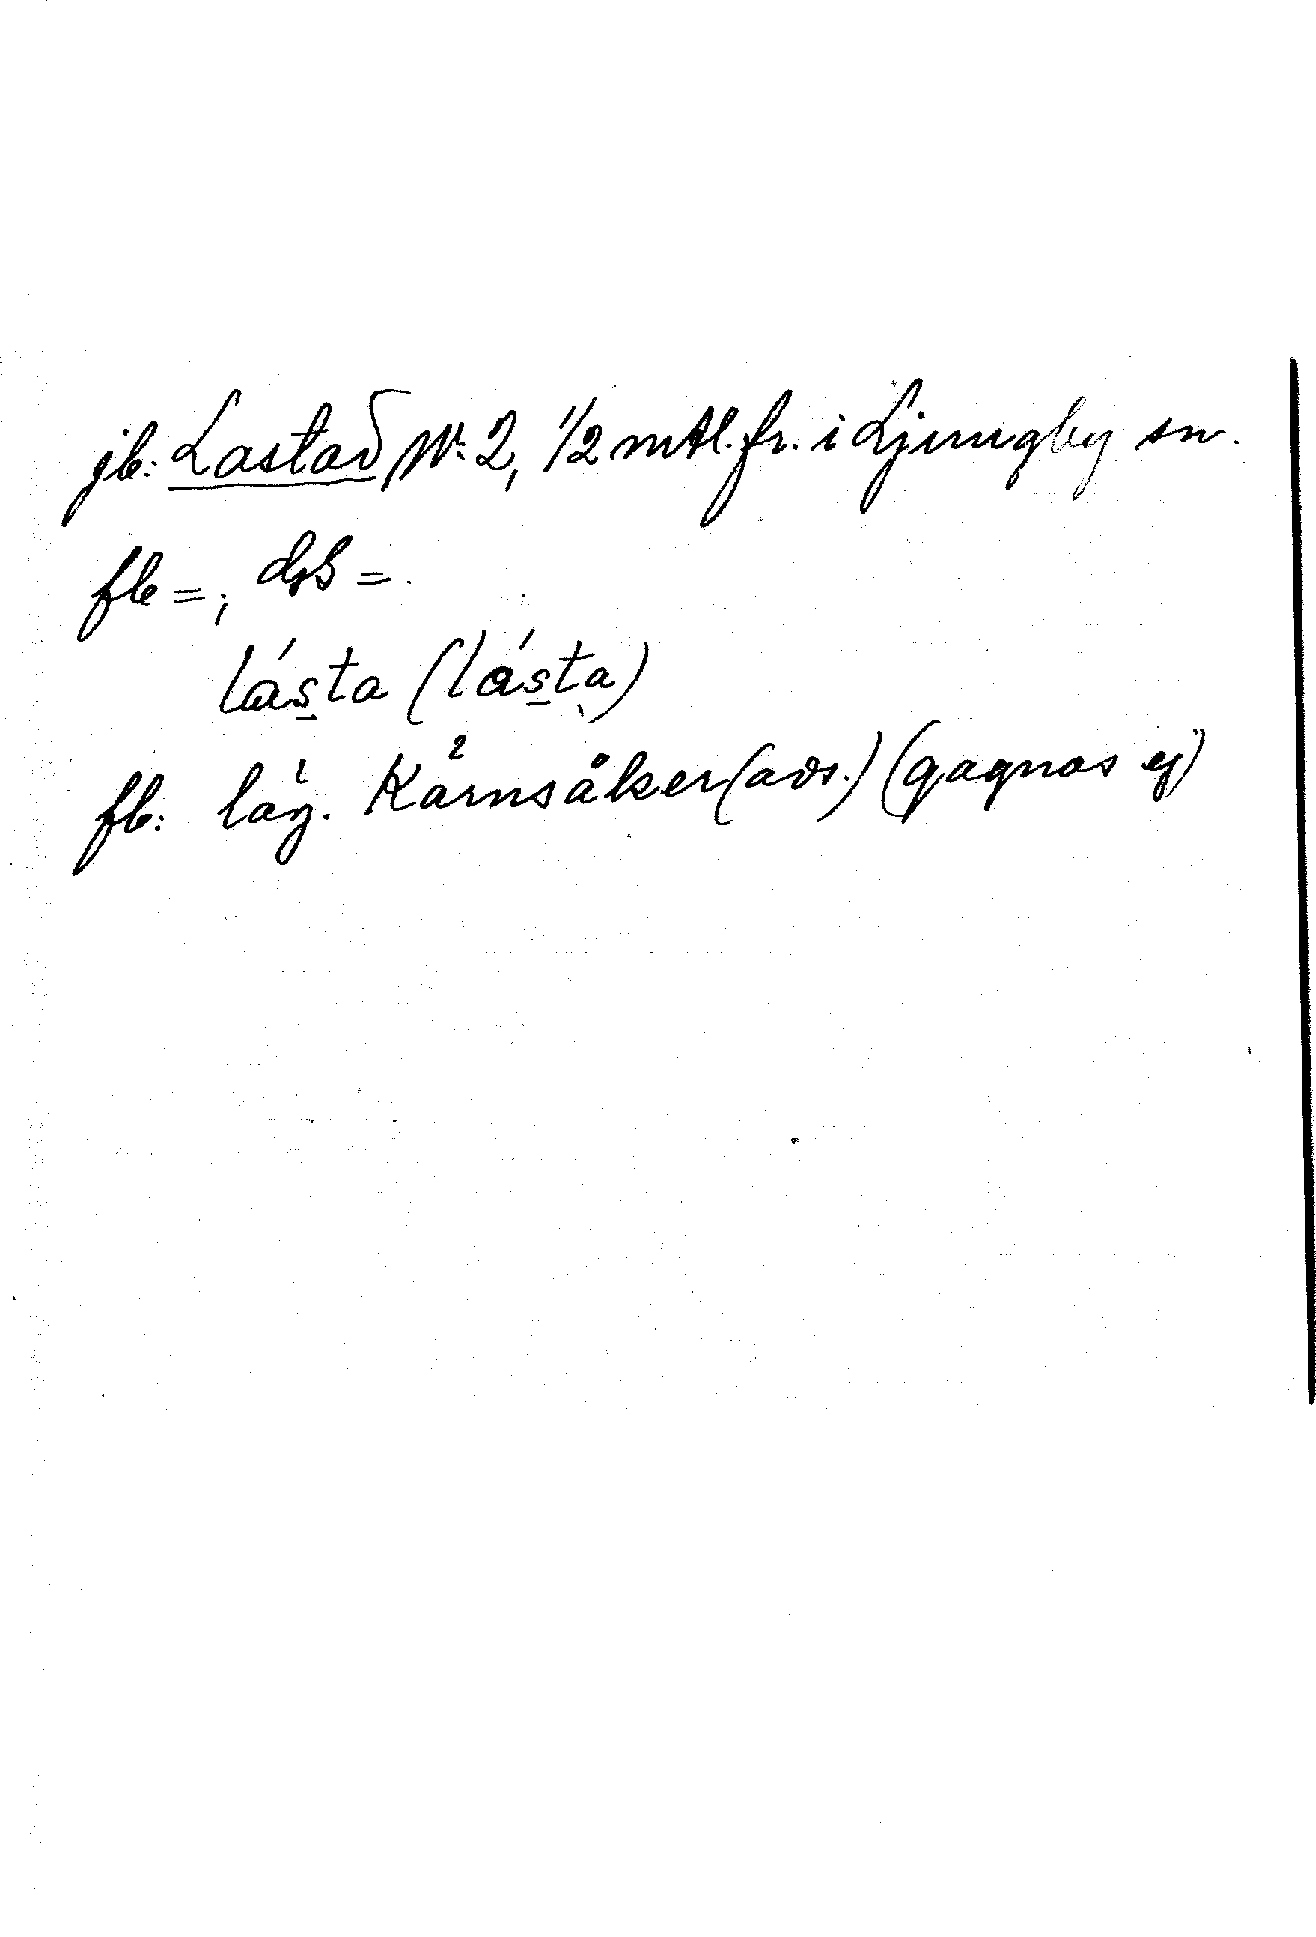 jb: Lastad Nr 2, 1/2 mtl. fr. i Ljungby sn.
fb =, dsb =.
lásta (lásta)
fb: läg. Kärnsåker (avs.) (gagnas ej)